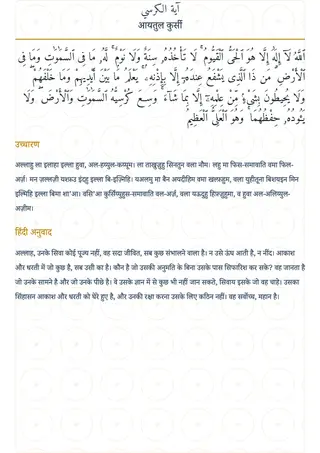 آية الكرسي
आयतुल कुर्सी
ٱللَّهُ لَآ إِلَٰهَ إِلَّا هُوَ ٱلْحَىُّ ٱلْقَيُّومُ ۚ لَا تَأْخُذُهُۥ سِنَةٌ وَلَا نَوْمٌ ۚ لَّهُۥ مَا فِى ٱلسَّمَٰوَٰتِ وَمَا فِى
ٱلْأَرْضِ ۗ مَن ذَا ٱلَّذِى يَشْفَعُ عِندَهُۥٓ إِلَّا بِإِذْنِهِۦ ۚ يَعْلَمُ مَا بَيْنَ أَيْدِيهِمْ وَمَا خَلْفَهُمْ ۖ
وَلَا يُحِيطُونَ بِشَىْءٍ مِّنْ عِلْمِهِۦٓ إِلَّا بِمَا شَآءَ ۚ وَسِعَ كُرْسِيُّهُ ٱلسَّمَٰوَٰتِ وَٱلْأَرْضَ ۖ وَلَا
يَـُٔودُهُۥ حِفْظُهُمَا ۚ وَهُوَ ٱلْعَلِىُّ ٱلْعَظِيمُ
उच्चारण
अल्लाहु ला इलाहा इल्ला हुवा, अल-हय्युल-कय्यूम। ला ताखुज़ुहू सिनतुन वला नौम। लहू मा फिस-समावाति वमा फिल-
अर्ज़। मन ज़ल्लज़ी यशफउ इंदहु इल्ला बि-इज़्निहि। यअलमु मा बैन अयदीहिम वमा खलफ़हुम, वला युहीतूना बिशयइन मिन
इल्मिहि इल्ला बिमा शा'आ। वसि'आ कुर्सिय्युहुस-समावाति वल-अर्ज़, वला यऊदुहू हिफ़्ज़ुहुमा, व हुवा अल-अलिय्युल-
अज़ीम।
हिंदी अनुवाद
अल्लाह, उनके सिवा कोई पूज्य नहीं, वह सदा जीवित, सब कुछ संभालने वाला है। न उसे ऊंघ आती है, न नींद। आकाश
और धरती में जो कुछ है, सब उसी का है। कौन है जो उसकी अनुमति के बिना उसके पास सिफारिश कर सके? वह जानता है
जो उनके सामने है और जो उनके पीछे है। वे उसके ज्ञान में से कुछ भी नहीं जान सकते, सिवाय इसके जो वह चाहे। उसका
सिंहासन आकाश और धरती को घेरे हुए है, और उनकी रक्षा करना उसके लिए कठिन नहीं। वह सर्वोच्च, महान है।